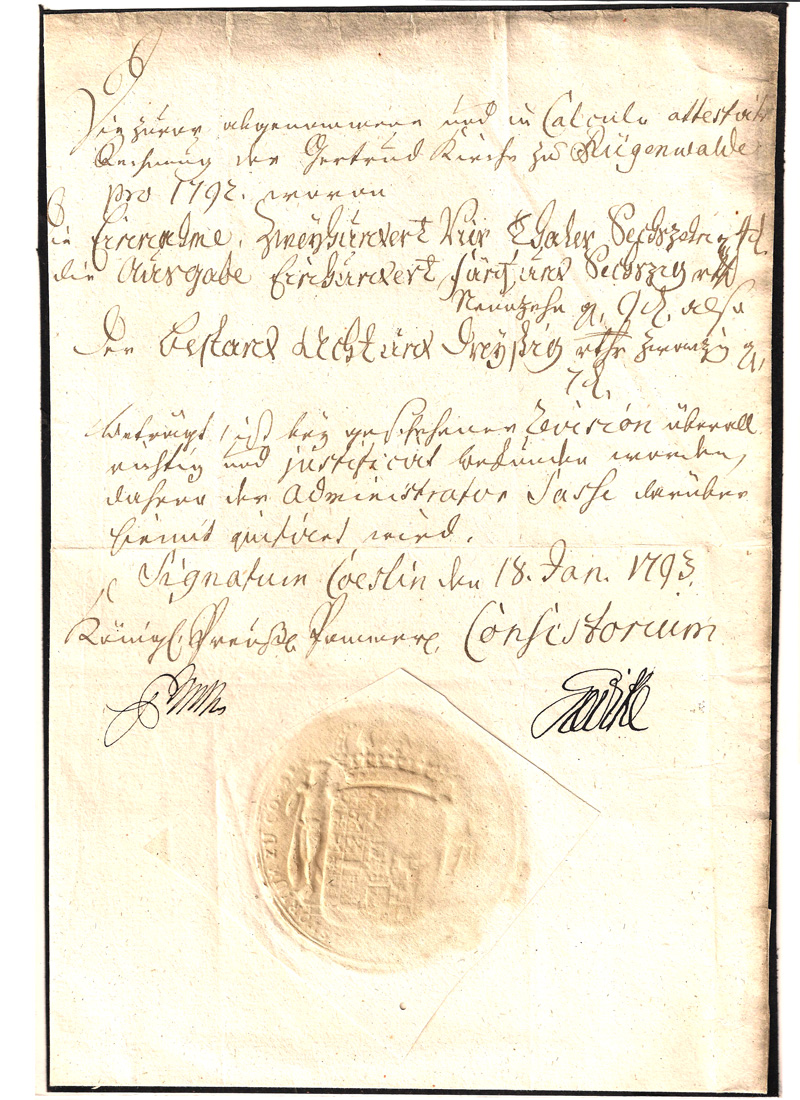 Die zuvor abgenommene und in Calculo attestirte
Rechnung der Gertrud Kirche zu Rügenwalde
pro 1792. wovon
die Einnahme, Zweyhundert Vier Thaler Sechszehn g. 4 d.
die Ausgabe Einhundert fünf und Sechszig rthl
Neunzehn g. 9 d. also
der Bestand Acht und Dreyßig rthr zwanzig g.
7 d.
beträgt, ist bey geschehener Revision überall
richtig und justificirt befunden worden,
dahero der Administrator Sasse darüber
hiemit quitiret wird.
Signatum Coeslin den 18. Jan. 1793.
Königl. Preuß. Pommer. Consistorium